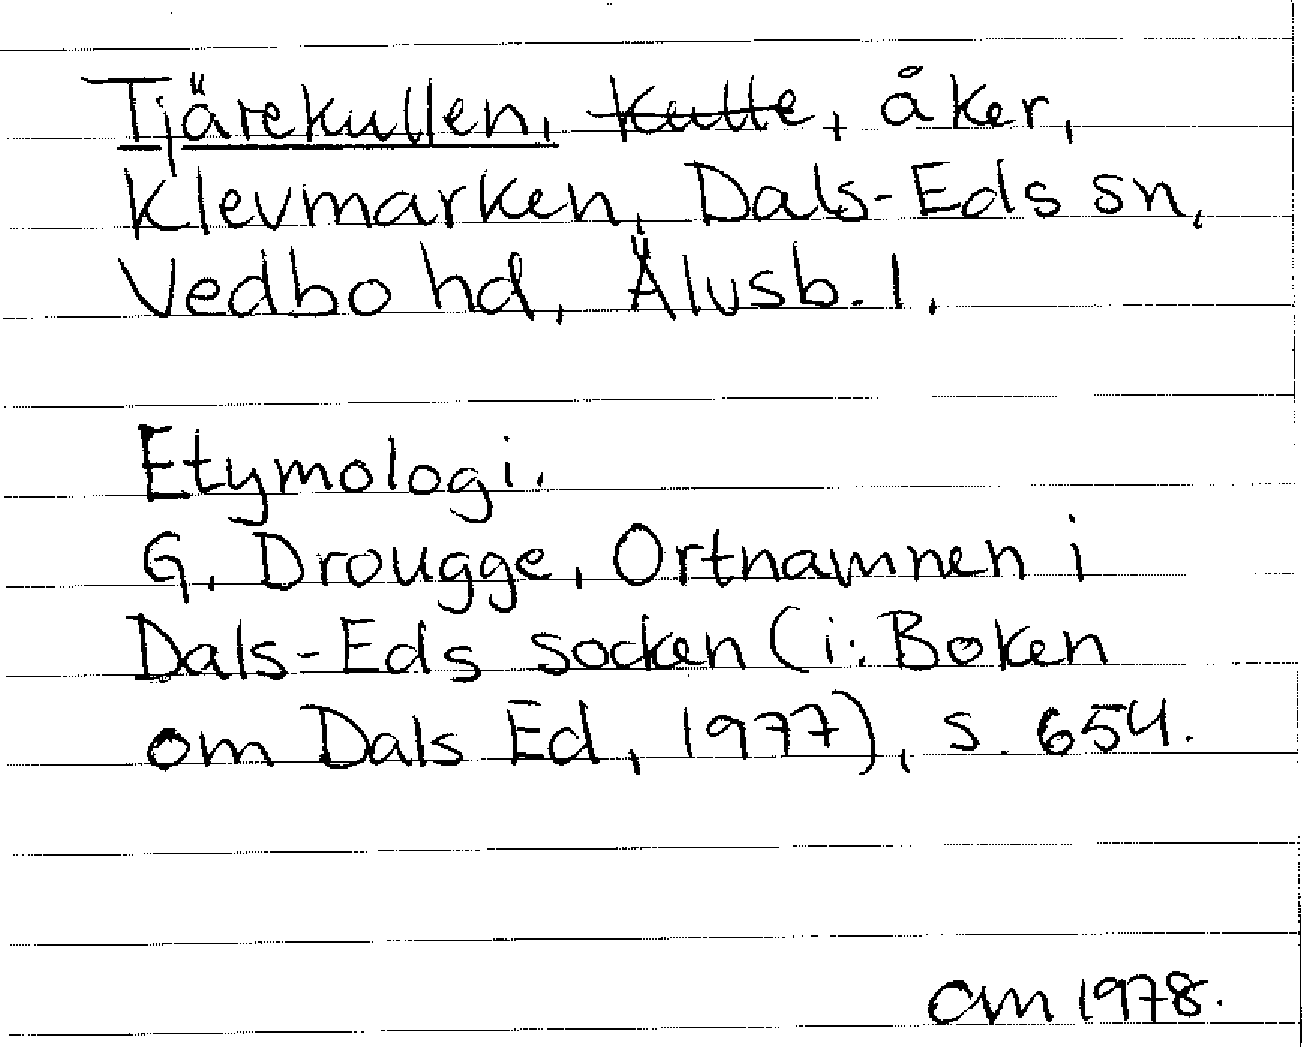 Tjärekullen, kulle, åker,
Klevmarken, Dals-Eds sn,
Vedbo hd, Älvsb. l.
Etymologi.
G. Drougge, Ortnamnen i
Dals-Eds socken (i: Boken
om Dals Ed, 1977), s. 654.
om 1978.